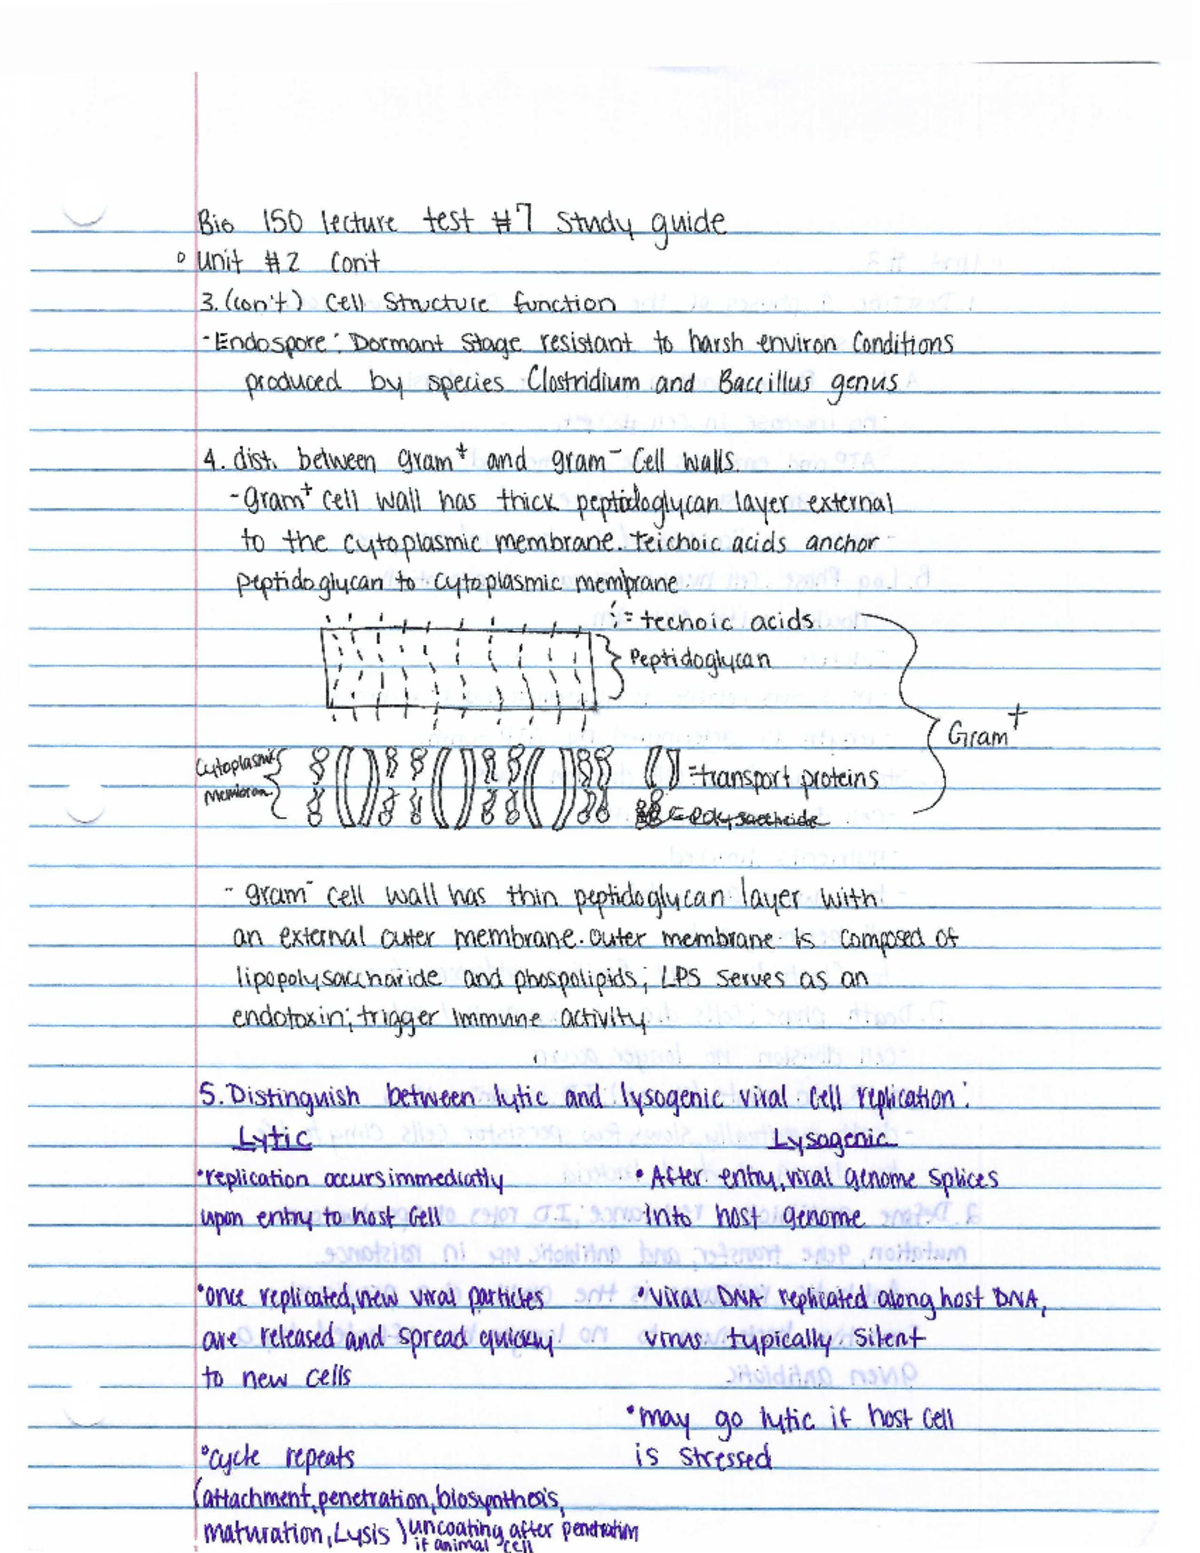 Bio 150 lecture test #7 Study guide
° Unit #2 Con't
3. (con't) Cell Structure function
- Endospore: Dormant Stage resistant to harsh environ Conditions
produced by species Clostridium and Baccillus genus
4. dist. between gram⁺ and gram⁻ Cell Walls
- gram⁺ cell wall has thick peptidoglycan layer external
to the cytoplasmic membrane. teichoic acids anchor
peptidoglycan to cytoplasmic membrane
= techoic acids
Peptidoglycan
Gram⁺
Cytoplasmic
Membran
= transport proteins
= Polysaccharide
- gram⁻ cell wall has thin peptidoglycan layer with
an external outer membrane. outer membrane is composed of
lipopolysaccharide and phospolipids; LPS serves as an
endotoxin; trigger immune activity
5. Distinguish between lytic and lysogenic viral Cell replication:
Lytic
Lysogenic
• replication occurs immediatly
upon entry to host Cell
• once replicated, new viral particles
are released and spread quickly
to new cells
• cycle repeats
(attachment, penetration, biosynthesis,
maturation, Lysis) uncoating after penetration
if animal cell
• After entry, viral genome splices
into host genome
• viral DNA replicated along host DNA,
virus typically silent
• may go lytic if host cell
is stressed